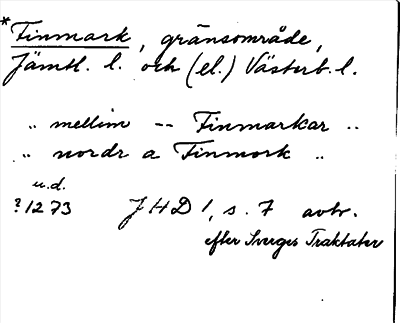 *Finmark, gränsområde,
Jämtl. l. och (el.) Västerb. l.
„ mellim -- Finmarkar ..
„ nordr a Finmork „
u.d.
?1273 JHD 1, s. 7 avtr.
efter Sverges Traktater